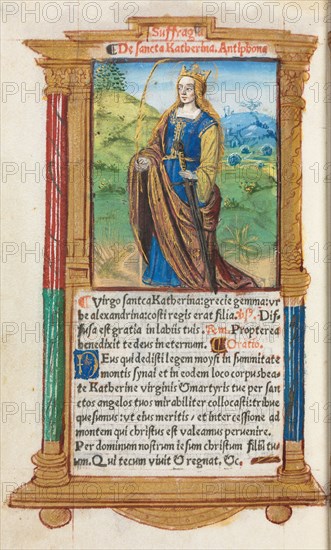 Suffrag
De sancta Katherina. Antiphona
Virgo sancta Katherina: grecie gemma: vr
be alexandrina: costi regis erat filia. ℣. Dif
fusa est gratia in labiis tuis. Rem. Propterea
benedixit te deus in eternum. Oratio.
Deus qui dedisti legem moysi in summitate
montis synai et in eodem loco corpus bea
te Katherine virginis & martyris tue per san
ctos angelos tuos mirabiliter collocasti: tribue
quesumus: vt eius meritis, et intercessione ad
montem qui christus est valeamus peruenire.
Per dominum nostrum iesum christum filiū tu
um. Qui tecum viuit & regnat, &c.